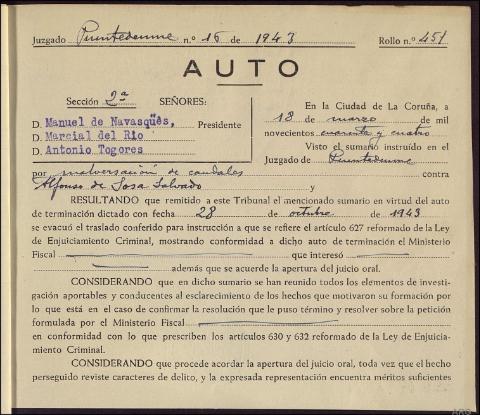 Juzgado Puentedeume n.º 16 de 1943 Rollo n.º 451
AUTO
Sección 2ª SEÑORES:
D. Manuel de Navasqües, Presidente
D. Marcial del Rio
D. Antonio Togores
En la Ciudad de La Coruña, a
18 de marzo de mil
novecientos cuarenta y cuatro
Visto el sumario instruído en el
Juzgado de Puentedeume
por malversación de caudales contra
Alfonso de Sosa Salvado y
RESULTANDO que remitido a este Tribunal el mencionado sumario en virtud del auto
de terminación dictado con fecha 28 de octubre de 1943
se evacuó el traslado conferido para instrucción a que se refiere el artículo 627 reformado de la Ley
de Enjuiciamiento Criminal, mostrando conformidad a dicho auto de terminación el Ministerio
Fiscal que interesó
además que se acuerde la apertura del juicio oral.
CONSIDERANDO que en dicho sumario se han reunido todos los elementos de investi-
gación aportables y conducentes al esclarecimiento de los hechos que motivaron su formación por
lo que está en el caso de confirmar la resolución que le puso término y resolver sobre la petición
formulada por el Ministerio Fiscal
en conformidad con lo que prescriben los artículos 630 y 632 reformado de la Ley de Enjuicia-
miento Criminal.
CONSIDERANDO que procede acordar la apertura del juicio oral, toda vez que el hecho
perseguido reviste caracteres de delito, y la expresada representación encuentra méritos suficientes